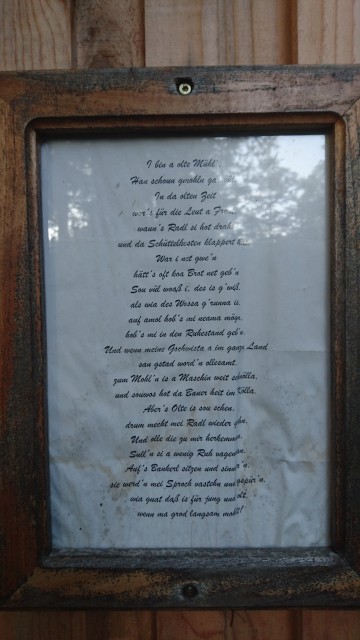 I bin a olte Mühl
Han schoun gmohln ga
In da olten Zeit
wor's für die Leut a
wann's Radl si hot drah
und da Schüttelkosten klappert
War i net gwe'n
hätt's oft koa Brot net geb'n
Sou vül woaß i, des is g'wiß,
als wia des Wossa g'runna is.
auf amol hob's mi neama mögn
hob's mi in den Ruhestand geb'n
Und wenn meine Gschwista a im ganzn Land
san gstad word'n ollesamt.
zum Mohl'n is a Maschin weit schnölla,
und souwos hot da Bauer heit im Kölla.
Aber's Olte is sou schen,
drum mecht mei Radl wieder
Und olle die zu mir herkemman
Sull'n si a wenig Ruh vagen
Auf's Bankerl sitzen und sinna'n.
sie werd'n mei Sproch vastehn und gspür'n,
wia guat daß is für jung und olt,
wenn ma grod langsam mohlt!